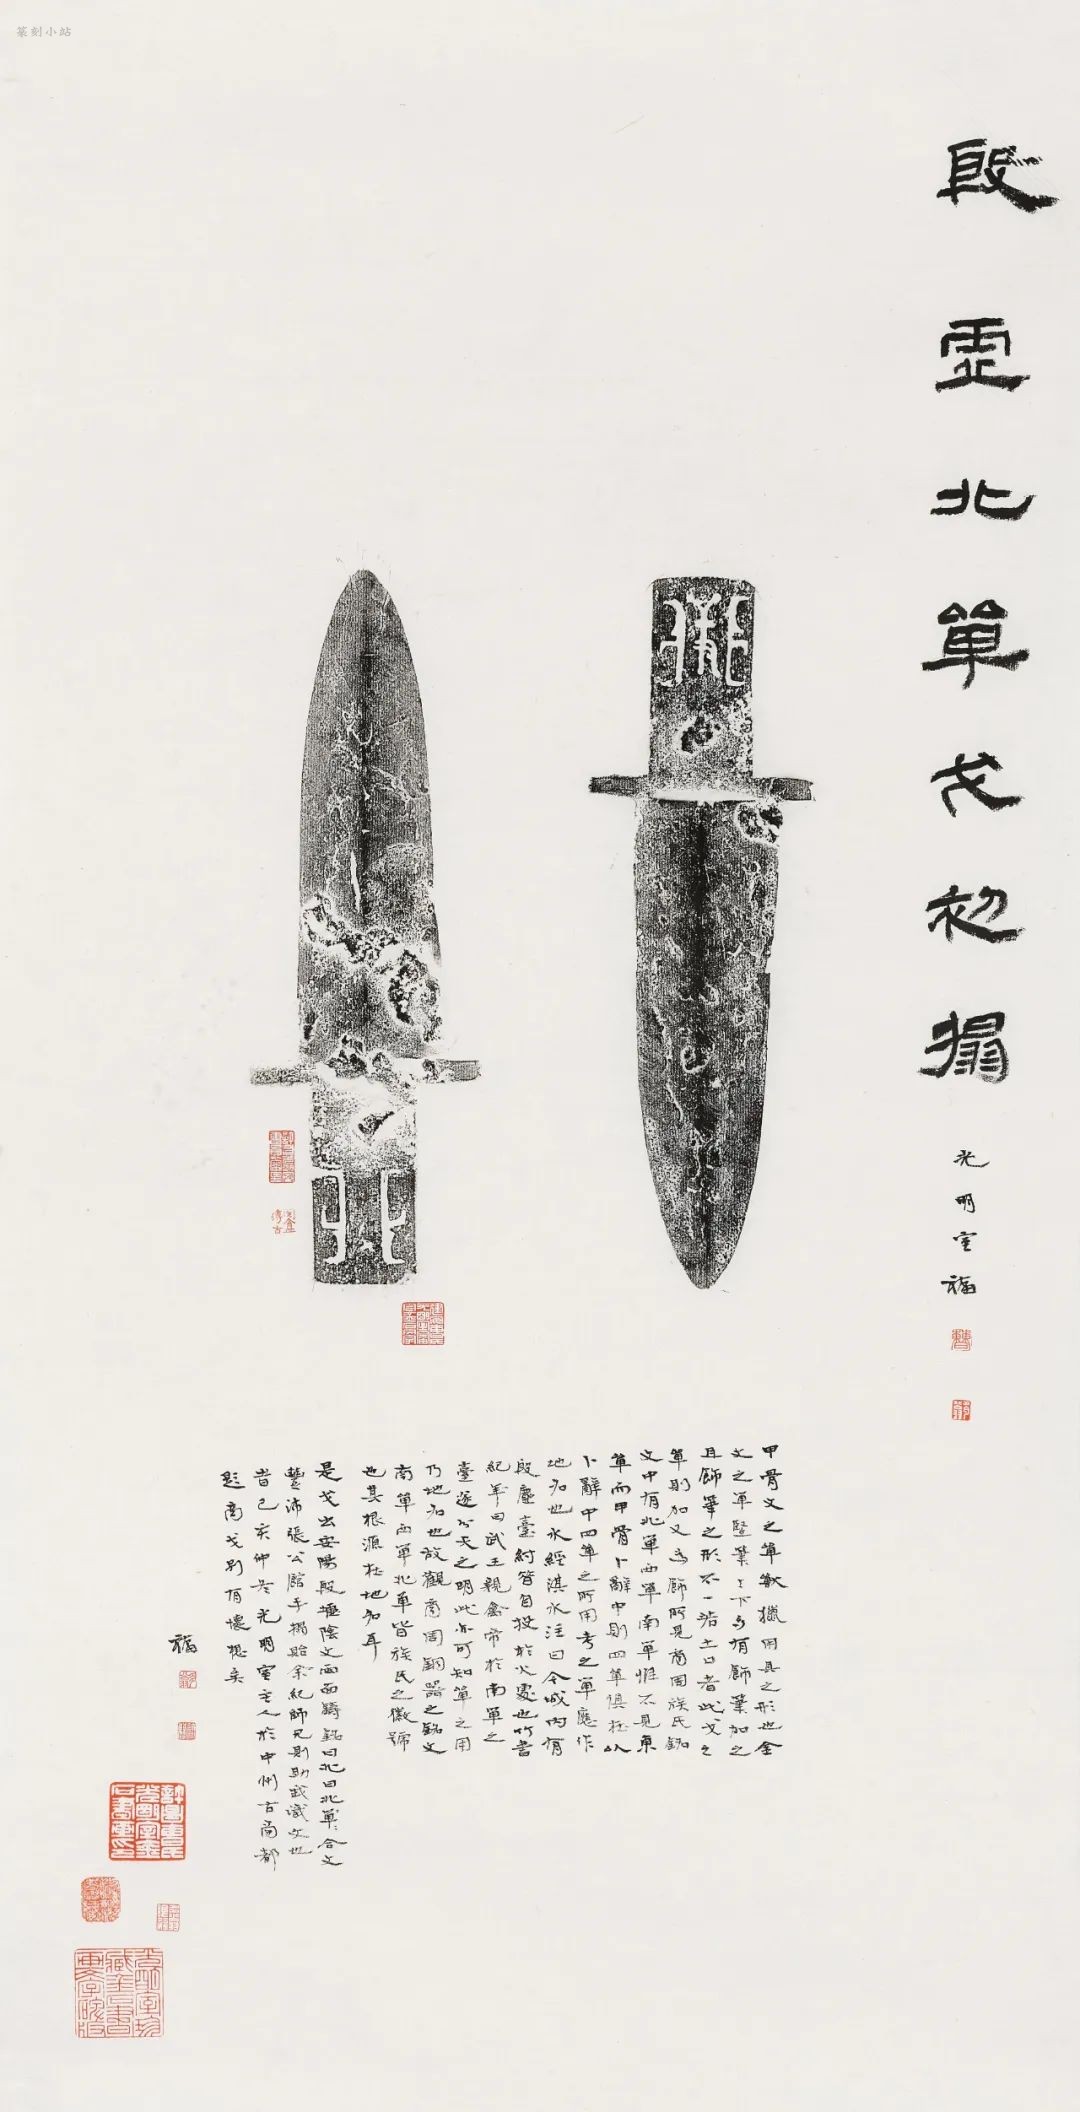 篆刻小站
殷虛北單戈初搨
光明室福
甲骨文之單獸獵用具之形也金
文之單豎筆之下多有飾筆加之
且飾筆之形不一 土口者此戈之
單則加又為飾所見商周族氏銘
文中有北單西單南單惟不見東
單而甲骨卜辭中則四單俱在以
卜辭中四單之所用考之單應作
地名也水經淇水注曰今城內有
殷鹿臺紂昔自投於火處也竹書
紀年曰武王親禽帝於南單之
臺遂分天之明此亦可知單之用
乃地名也故觀商周銅器之銘文
南單西單北單皆族氏之徽號
也其根源在地名耳
是戈出安陽殷墟陰文兩面鑄銘曰北曰北單合文
豐沛張公館手搨貽余紀師兄則助我識文也
昔己亥仲冬光明室主人於中州古商都
題商戈別有懷想矣
福